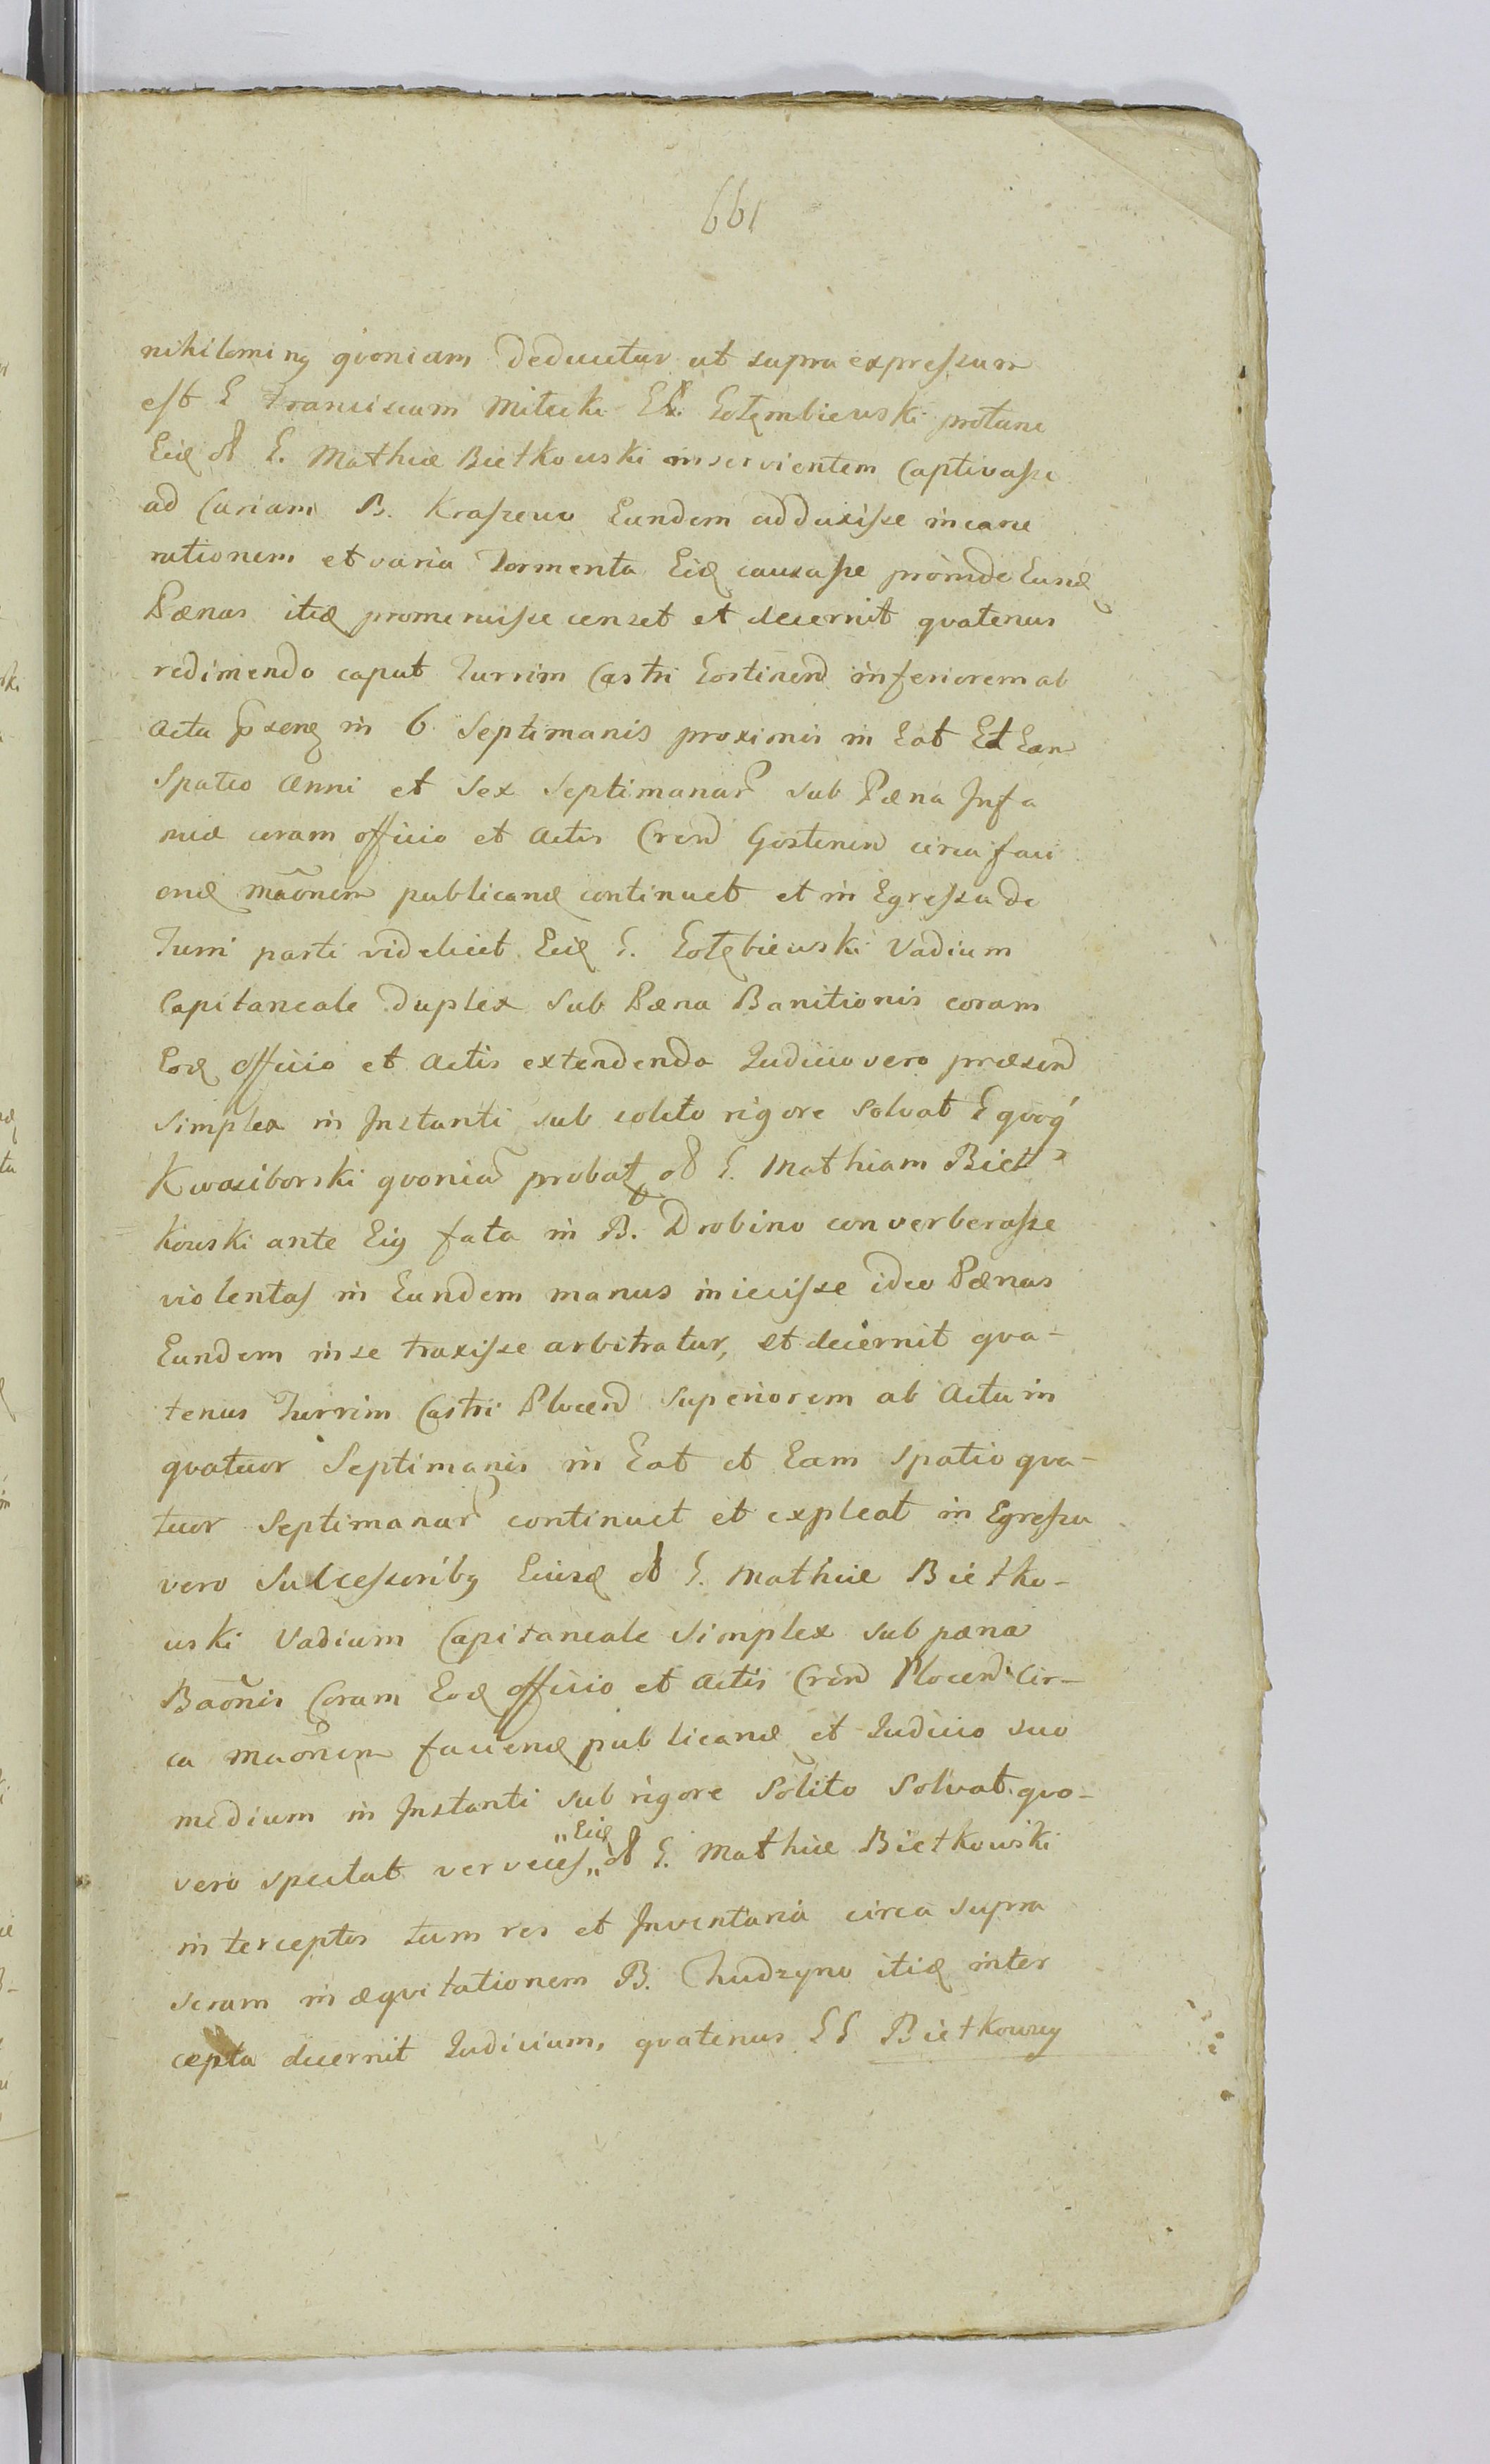 661
nihilominꝰ qvoniam deducitur ut supra expressum
est G Franciscum Mitecki GG. Gołembiewski protunc
Eidꝫ olī G. Mathiæ Bietkowski inservientem Captivasse
ad Curiam B. Krassewo Eundem adduxisse incarce
rationem et varia Tormenta Eidꝫ causasse proinde Eundꝫ
Pænas itidꝫ promeruisse censet et decernit qvatenus
redimendo caput Turrim Castri Gostinen inferiorem ab
Actu præsenꝫ in 6 Septimanis proximis in Eat Et Ean
Spatio Anni et Sex Septimanar sub Pæna Infa
miæ coram officio et Actis Cren Gostinen circa faci
endꝫ mãonem publicandꝫ continuet et in Egressu de
Turri parti videlicet Eidꝫ G. Gołębiewski Vadium
Capitaneale duplex sub Pæna Banitionis coram
Eodꝫ officio et Actis extendendo Judicio vero præsen
simplex in Instanti sub solito rigore solvat G qvoq́
Kwasiborski qvoniã probatꝫ olī G. Mathiam Biet-
kowski ante Eiꝰ fata in B. Drobino converberasse
violentas in Eundem manus iniecisse ideo Pænas
Eundem in se traxisse arbitratur, et decernit qva-
tenus Turrim Castri Plocen Superiorem ab Actu in
qvatuor Septimanis in Eat et Eam spatio qva-
tuor Septimanar continuet et expleat in Egressu
vero Successoribꝰ Eiusdꝫ olī G. Mathiæ Bietko-
wski Vadium Capitaneale Simplex sub pæna
Bãonis Coram Eodꝫ officio et Actis Cren Plocen Cir-
ca mãonem faciendꝫ publicandꝫ et Judicio suo
medium in Instanti sub rigore Solito Solvat. qvo-
vero spectat verveces „Eidꝫ„ olī G. Mathiæ Bietkowski
interceptos tum res et Inventaria circa supra
scram inæqvitationem B. Chudzyno itidꝫ inter
cepta decernit Judicium, qvatenus GG Bietkowscy